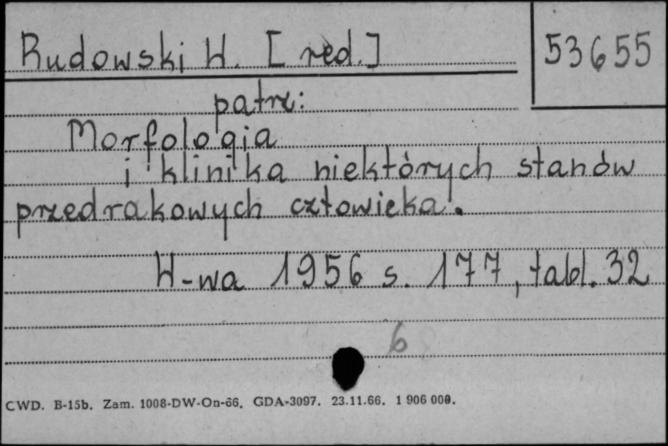 Rudowski W. [red.]
53655
patrz:
Morfologia
i klinika niektórych stanów
przedrakowych człowieka.
W-wa 1956 s. 177, tabl. 32
6
CWD. B-15b. Zam. 1008-DW-On-66. GDA-3097. 23.11.66. 1 906 000.